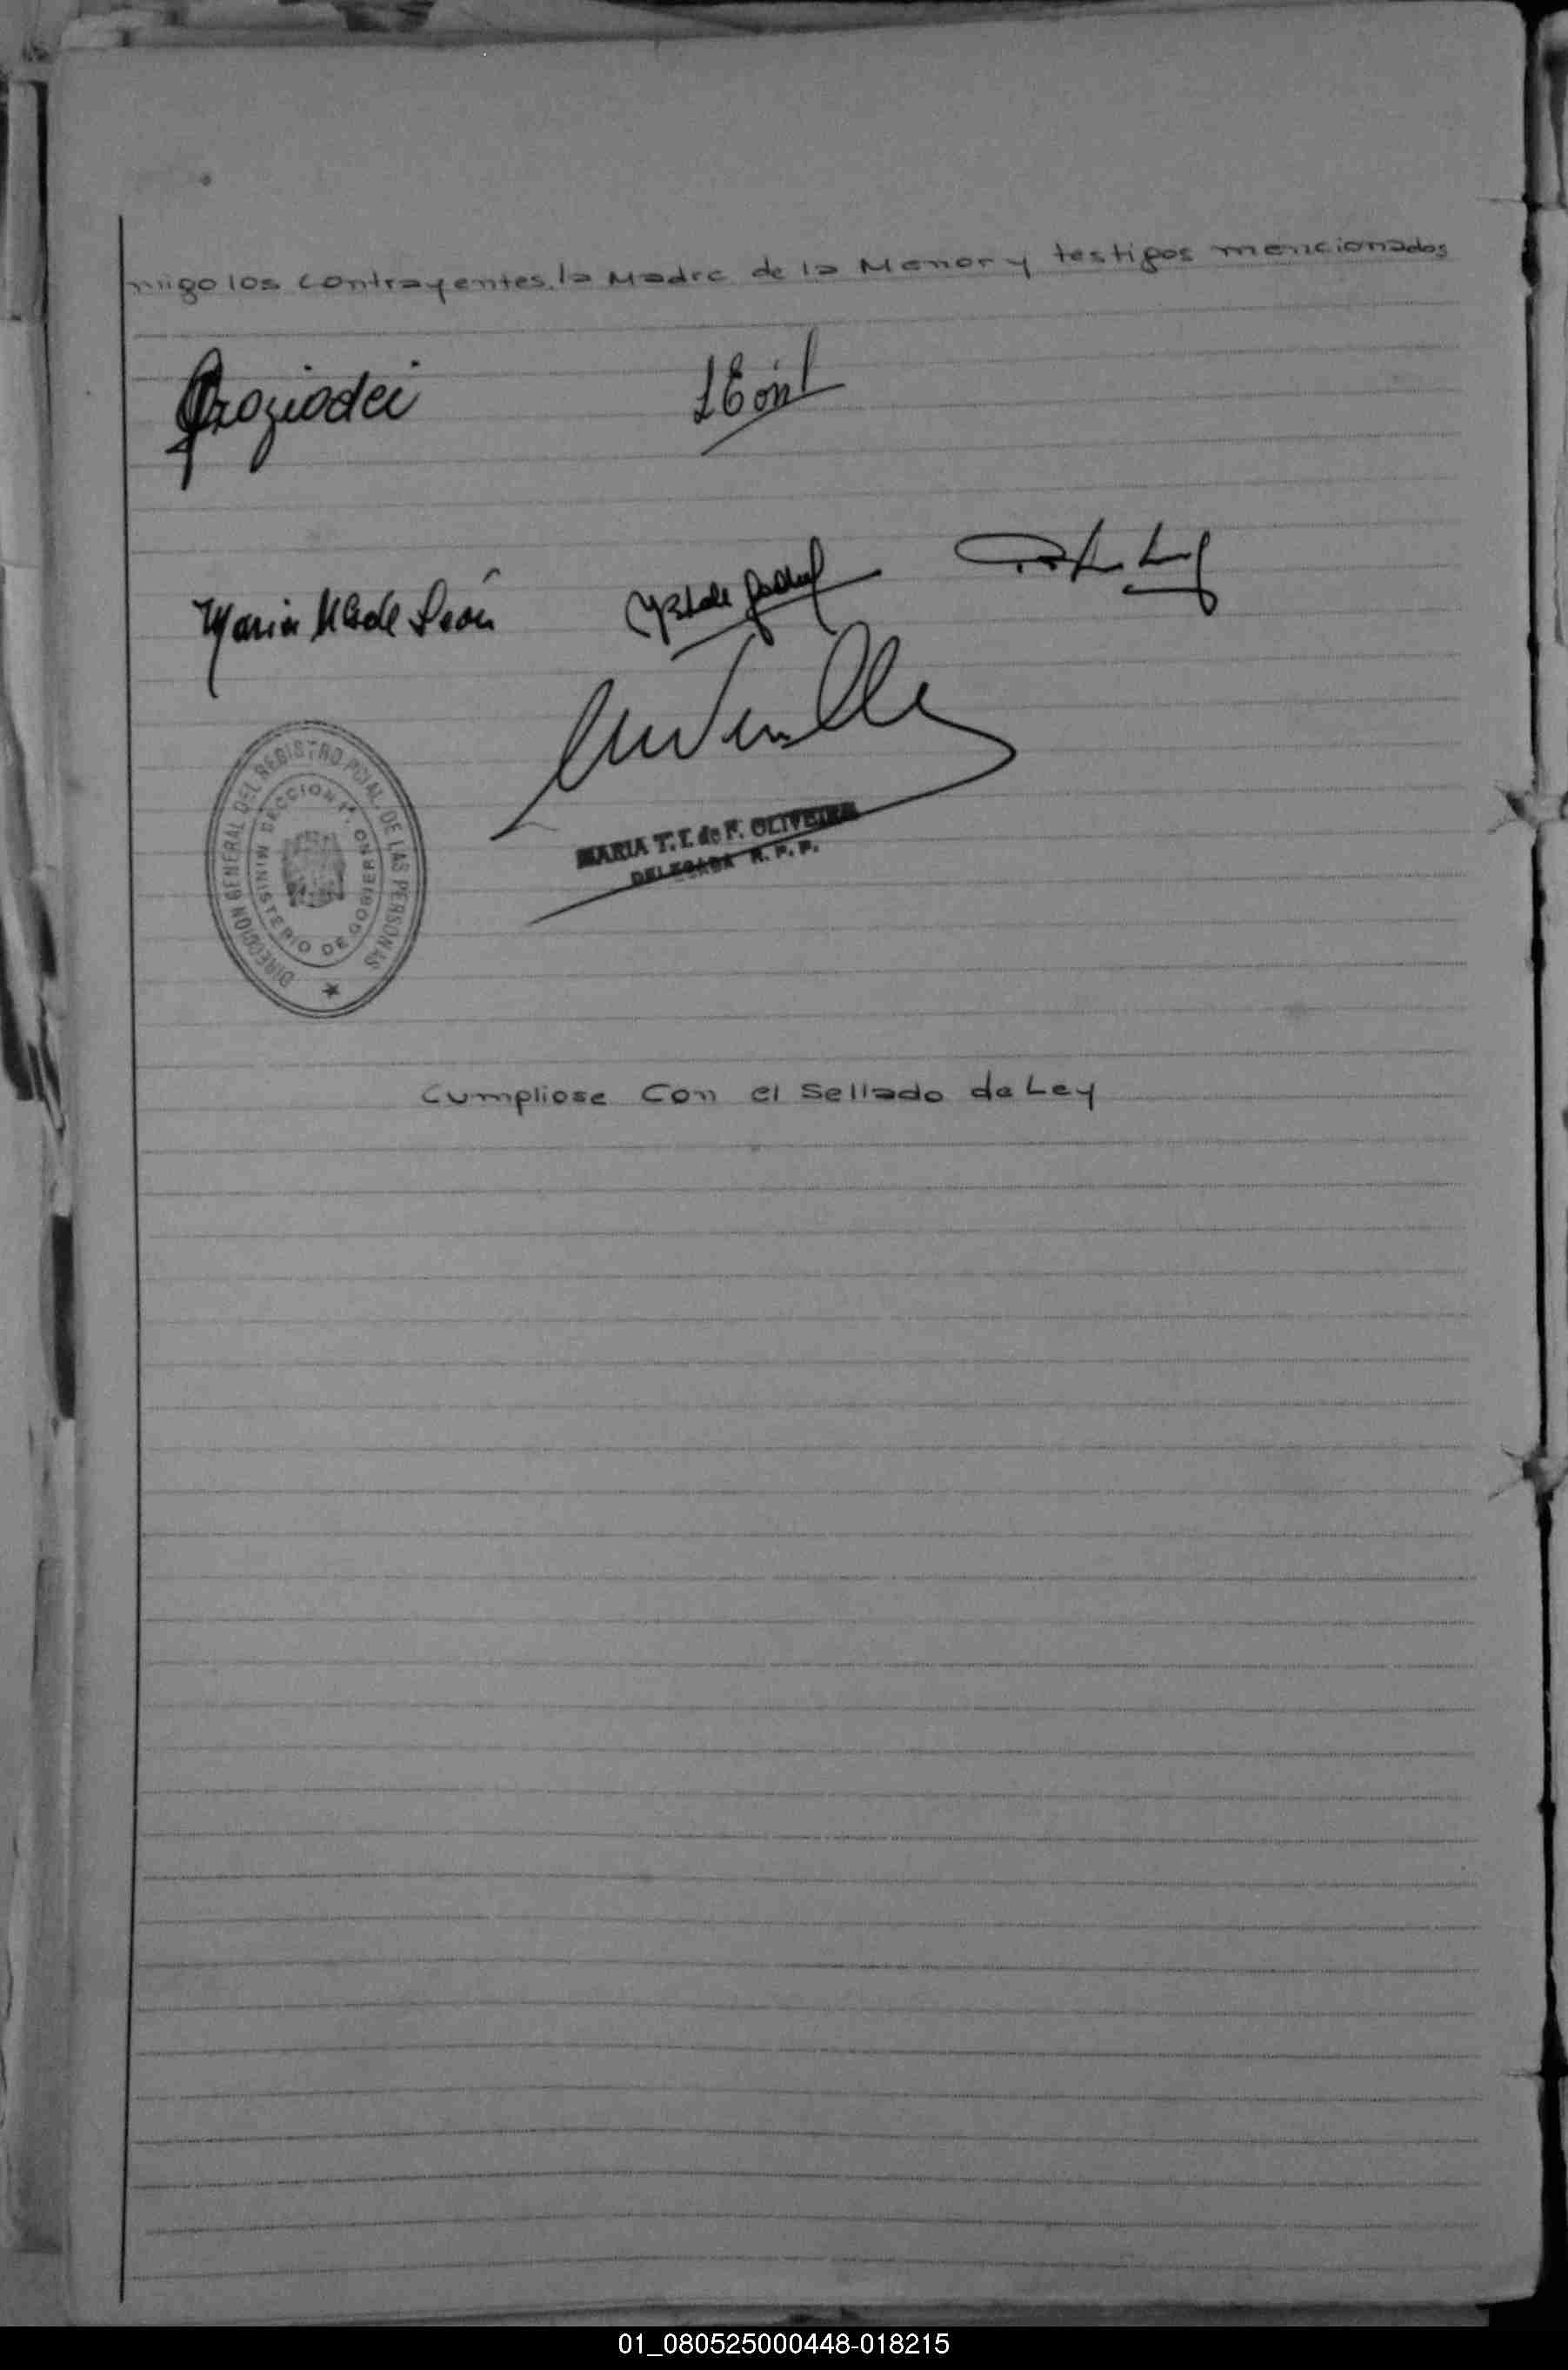 migo los contrayentes, la Madre de la Menor y testigos mencionados
Graziodei
LEónl
Maria M de León
MARIA T. I. de F. OLIVEIRA
DELEGADA R. P. P.
DIRECCION GENERAL DEL REGISTRO PCIAL. DE LAS PERSONAS
MINISTERIO DE GOBIERNO
Cumpliose Con el Sellado de Ley
01_080525000448-018215